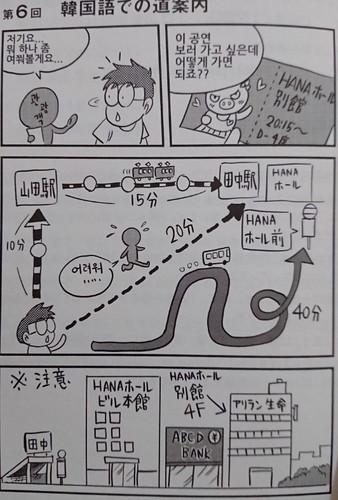 第6回 韓国語での道案内
저기요...
뭐 하나 좀
여쭤볼게요...
관광객
이 공연
보러 가고 싶은데
어떻게 가면
되죠??
HANAホール
別館
20:15~
山田駅
15分
田中駅
HANA
ホール
10分
20分
HANA
ホール前
어려워
.....
40分
※注意
田中
HANAホール
ビル本館
HANAホール
別館
4F
ABCD ¥
BANK
アリラン生命